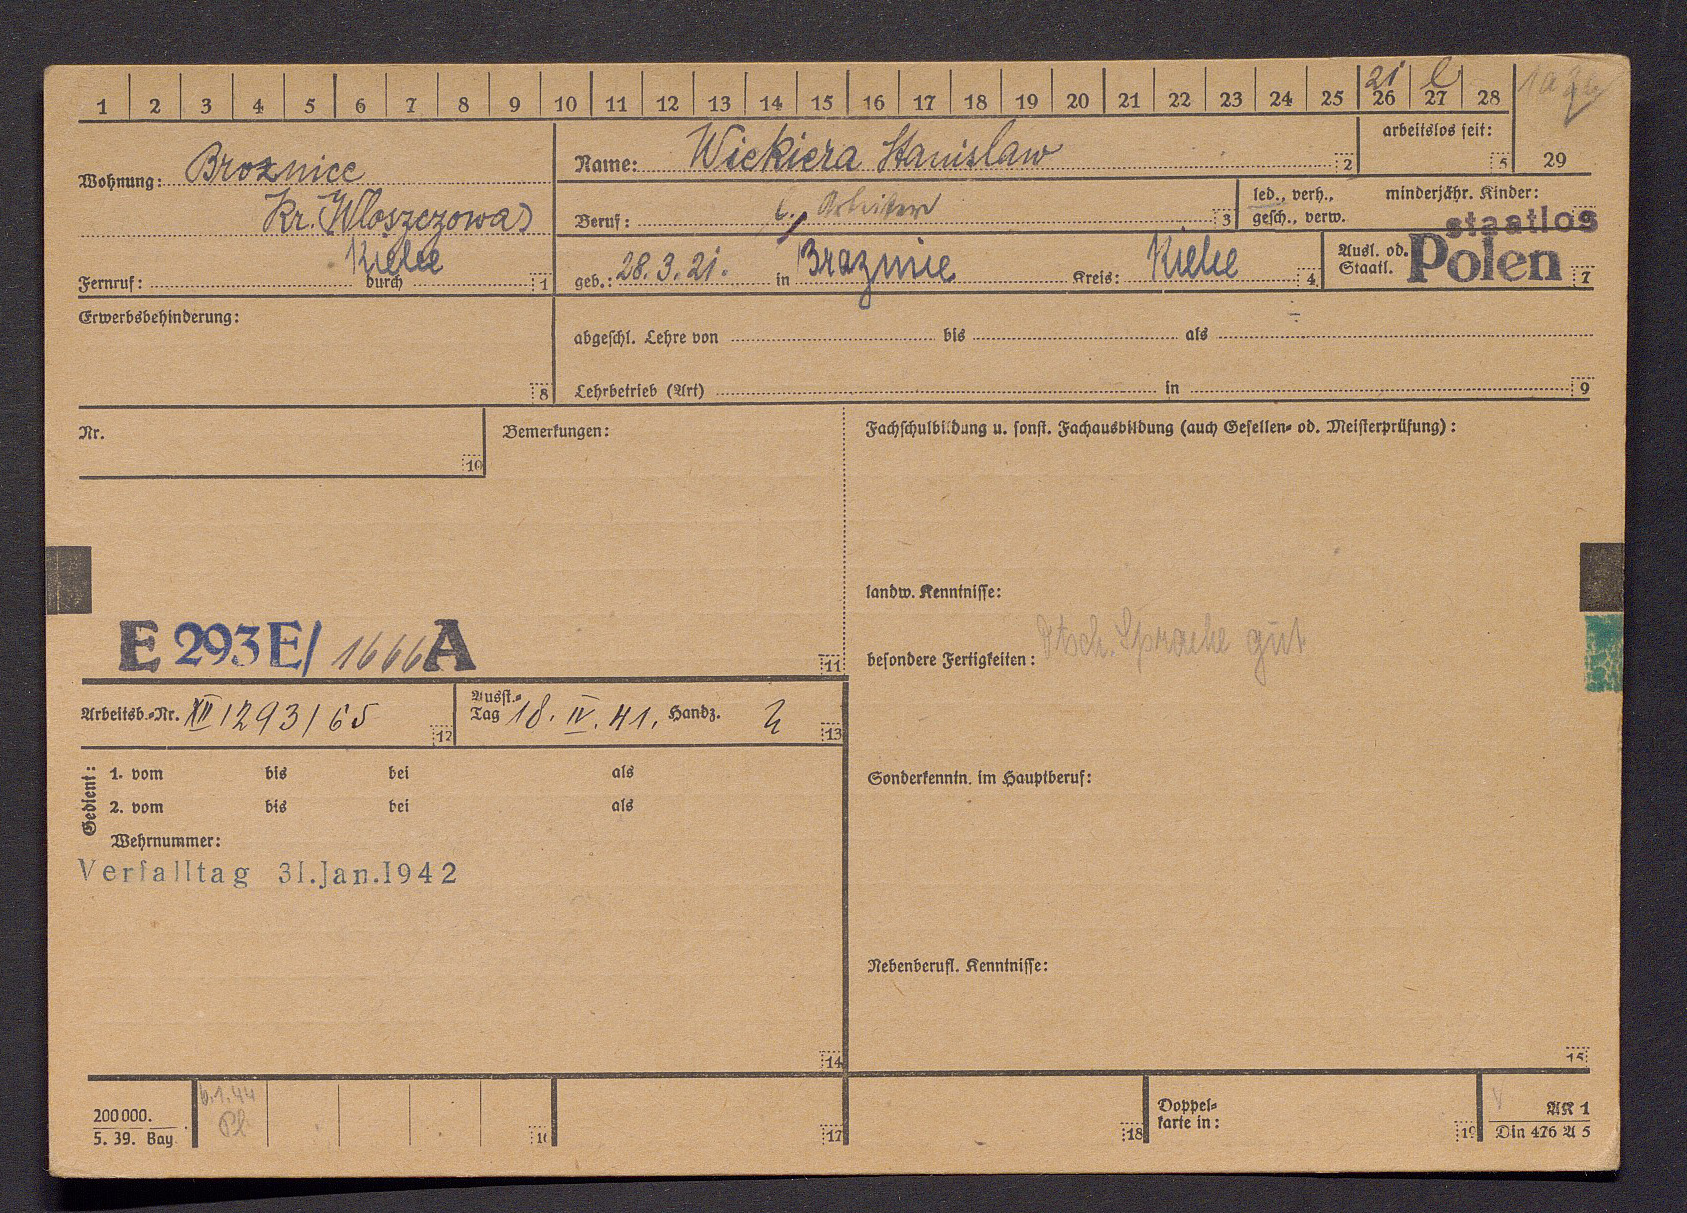 1 2 3 4 5 6 7 8 9 10 11 12 13 14 15 16 17 18 19 20 21 22 23 24 25 26 27 28
21
29
Wohnung: Broznice
Kr. (Wloszczowa)
Kielce
Fernruf: durch 1
Name: Wiekiera Stanislaw 2
arbeitslos seit: 5
Beruf: l. Arbeiter 3
led., verh., gesch., verw.
minderjähr. Kinder:
staatlos
geb.: 28.3.21. in Brazmie Kreis: Kielce 4
Ausl. od. Staatl. Polen 7
Erwerbsbehinderung:
8
abgeschl. Lehre von bis als
Lehrbetrieb (Art) in 9
Nr.
10
Bemerkungen:
Fachschulbildung u. sonst. Fachausbildung (auch Gesellen- od. Meisterprüfung):
landw. Kenntnisse:
E 293 E/ 1666 A
11
besondere Fertigkeiten: Dtsch. Sprache gut
Arbeitsb.-Nr. XII 1293/65 12
Ausst.-Tag 18. IV. 41. Handz. 13
Gedient:
1. vom bis bei als
2. vom bis bei als
Wehrnummer:
Verfalltag 31. Jan. 1942
Sonderkenntn. im Hauptberuf:
Nebenberufl. Kenntnisse:
14
15
200 000.
5. 39. Bay.
6.1.44
16
17
18
Doppel-
karte in:
19
AK 1
Din 476 A 5